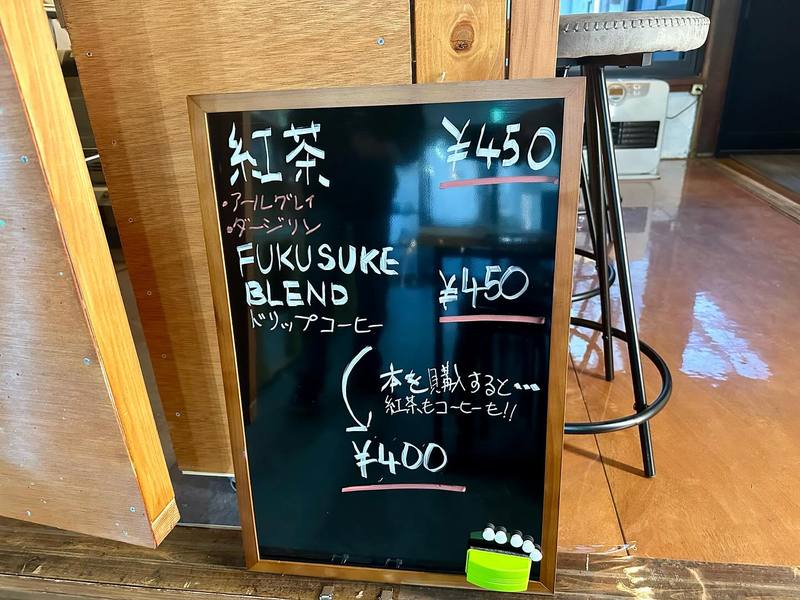 紅茶 ¥450
・アールグレイ
・ダージリン
FUKUSUKE
BLEND ¥450
ドリップコーヒー
本を購入すると…
紅茶もコーヒーも!!
¥400